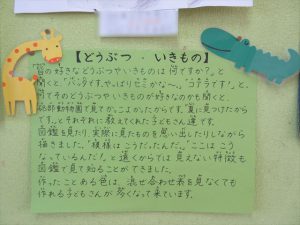 【どうぶつ・いきもの】
「皆の好きなどうぶつやいきものは何ですか?」と
聞くと、「バッタです。やっぱりセミかな〜。」「コアラです!」と。
何でそのどうぶつやいきものが好きなのかも聞くと、
動物園で見てかっこよかったからです。夏に見つけたから
です。」とそれぞれに教えてくれた子どもさん達です。
図鑑を見たり、実際に見たものを思い出したりしながら
描きました。「模様はこうだったんだ。」「ここはこう
なっているんだ!」と遠くからでは見えない特徴も
図鑑で見て知ることができました。
作ったことある色は、混ぜ合わせ表を見なくても
作れる子どもさんが多くなって来ています。